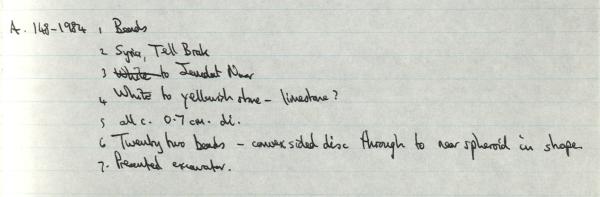 A. 148-1984 1 Beads
2 Syria, Tell Brak
3 White to Jemdat Nasr
4 White to yellowish stone - limestone?
5 all c. 0.7 cm. di.
6 Twenty two beads - convex sided disc through to near spheroid in shape
7. Presented excavator.